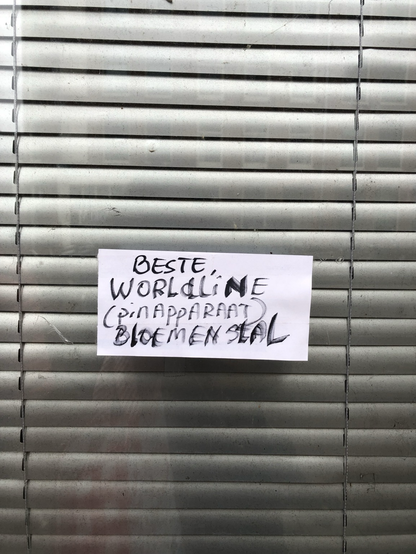 BESTE,
WORLdLiNE
(PiNAPPARAAT)
BLOEMENSTAL